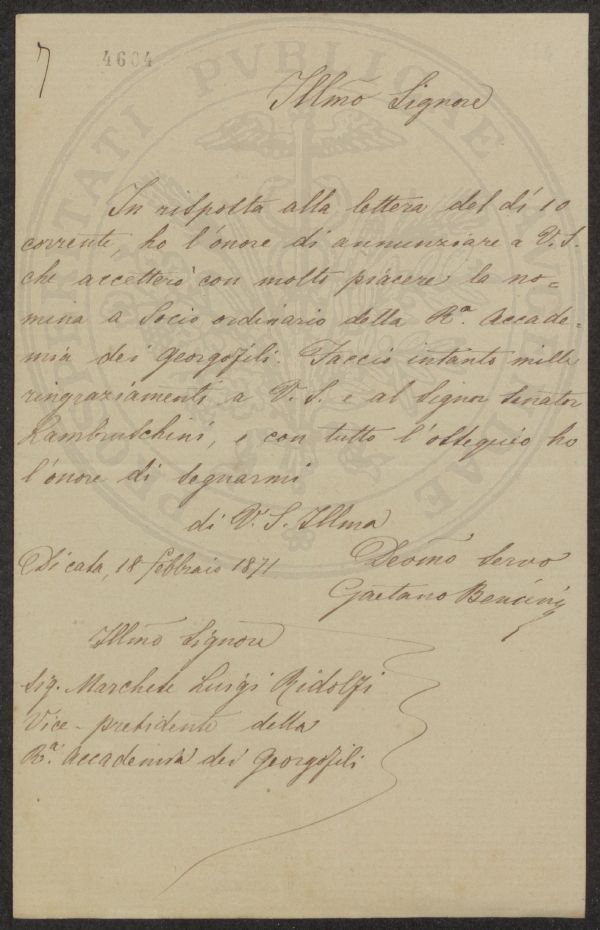 7
4604
PROSPERITATI PVBLICAE AVGENDAE
Illmo Signore
In risposta alla lettera del dì 10
corrente, ho l'onore di annunziare a V. S.
che accetterò con molto piacere la no=
mina a Socio ordinario della Rª. Accade=
mia dei Georgofili. Faccio intanto mille
ringraziamenti a V. S. e al Signor Senator
Lambruschini, e con tutto l'ossequio ho
l'onore di segnarmi
di V. S. Illma
Di casa, 18 febbraio 1871
Devomo Servo
Gaetano Bencini
Illmo Signore
Sig. Marchese Luigi Ridolfi
Vice-presidente della
Rª. Accademia dei Georgofili